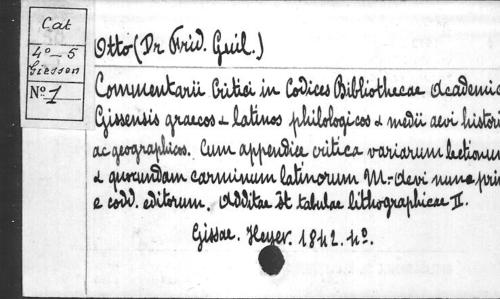 Cat
4o–5
Giessen
No 1
Otto (Dr Frid. Guil.)
Commentarii Critici in Codices Bibliothecae Academic
Gissensis graecos & latinos philologicos & medii aevi histori
ac geographicos. Cum appendice critica variarum lectionum
& quorundam carminum latinorum M.-aevi nunc prim
e codd. editorum. Additae st tabulae lithographicae II.
Gissae. Heyer. 1842. 4o.